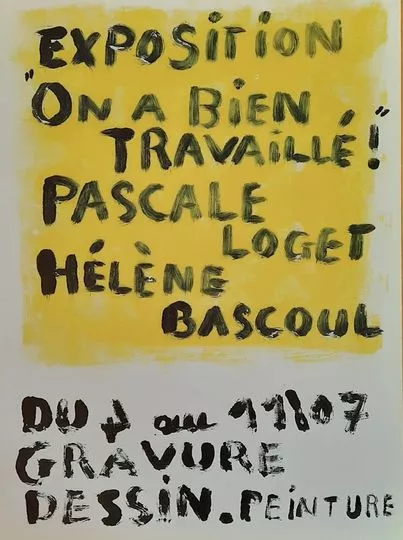 EXPOSITION
"ON A BIEN
TRAVAILLÉ!"
PASCALE
LOGET
HÉLÈNE
BASCOUL
DU au 11/07
GRAVURE
DESSIN.PEINTURE